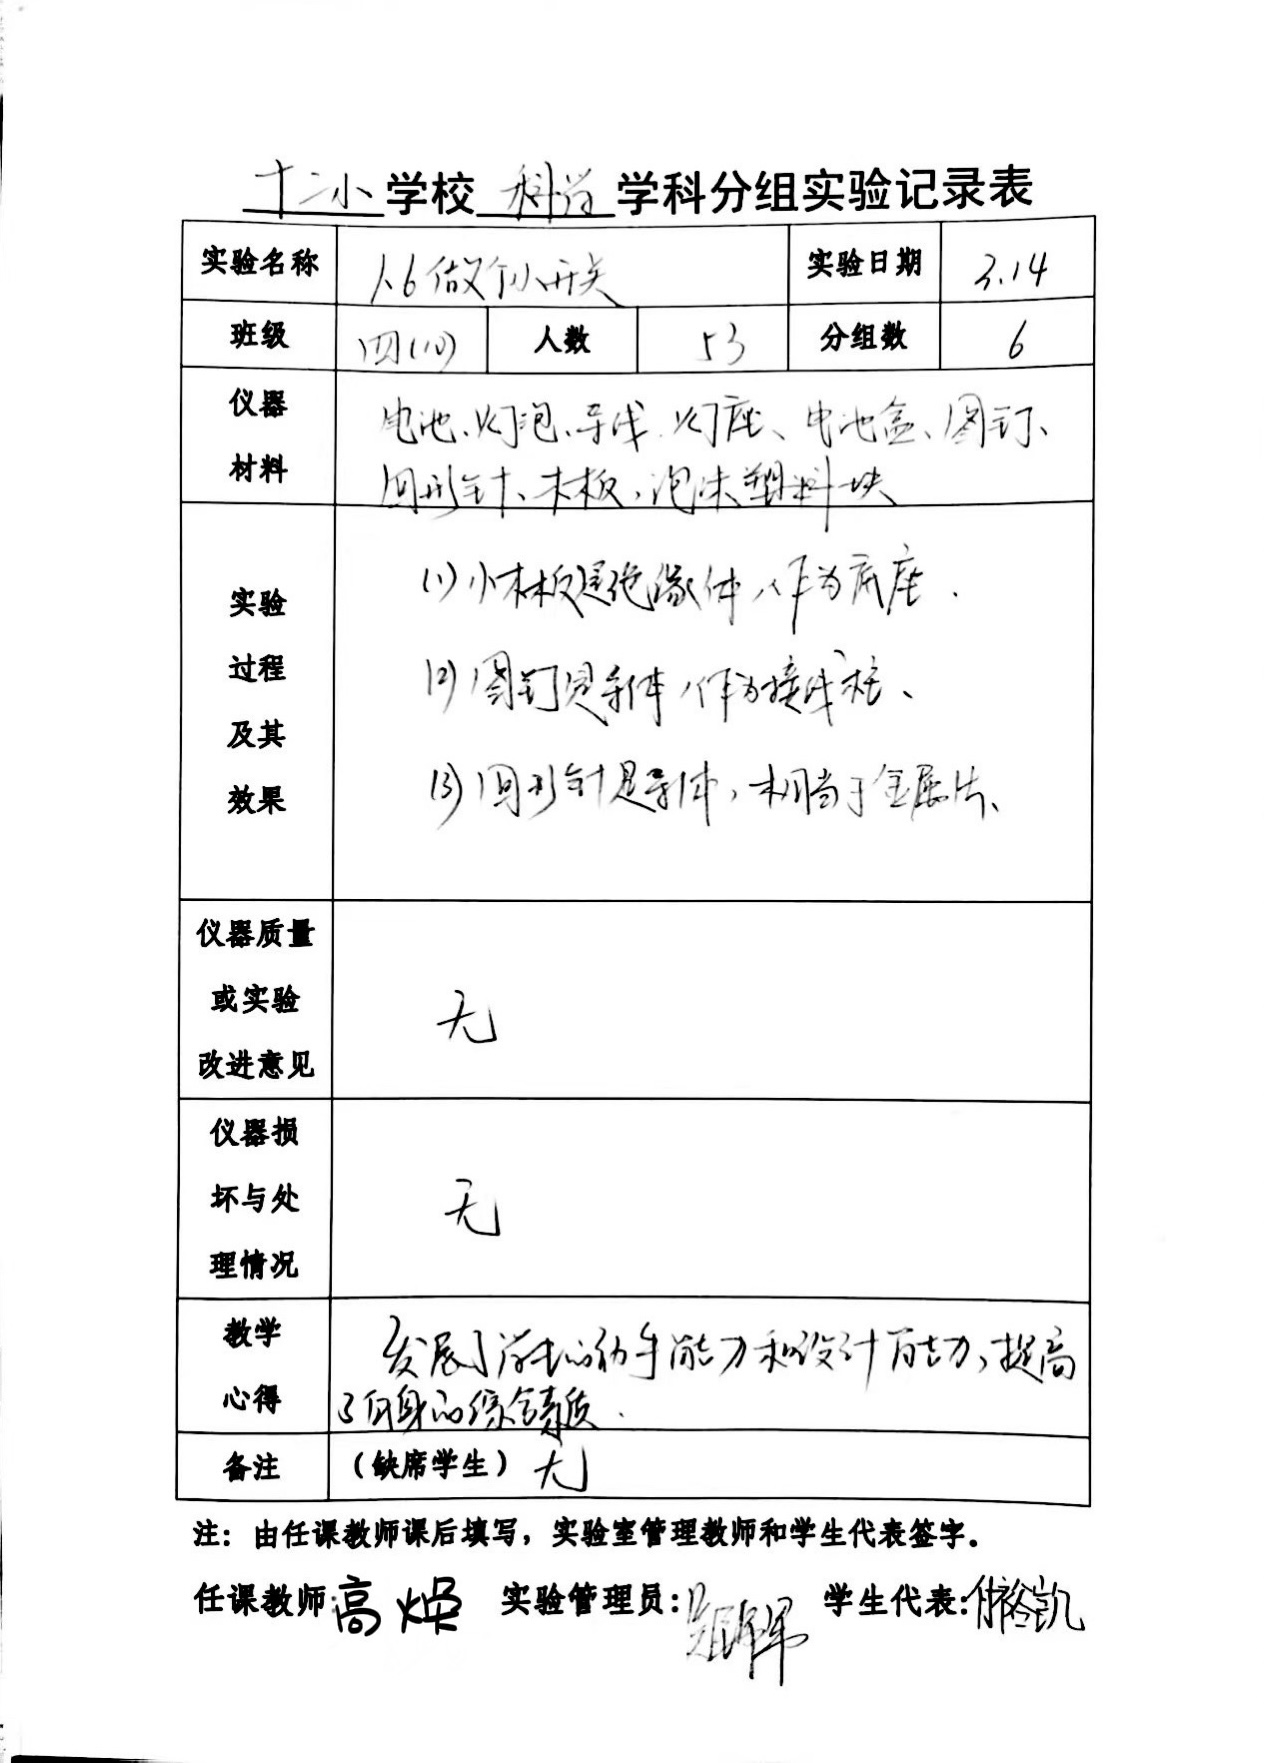 十二小学校 科学 学科分组实验记录表
实验名称 1.6做个小开关 实验日期 3.14
班级 四(10) 人数 53 分组数 6
仪器材料 电池、灯泡、导线、灯座、电池盒、图钉、
回形针、木板、泡沫塑料块
实验过程及其效果
(1)小木板是绝缘体,作为底座.
(2)图钉是导体,作为接线柱、
(3)回形针是导体,相当于金属片、
仪器质量或实验改进意见 无
仪器损坏与处理情况 无
教学心得 发展了学生的动手能力和设计能力,提高
了自身的综合素质.
备注 (缺席学生) 无
注:由任课教师课后填写,实验室管理教师和学生代表签字。
任课教师:高焕 实验管理员: 学生代表: